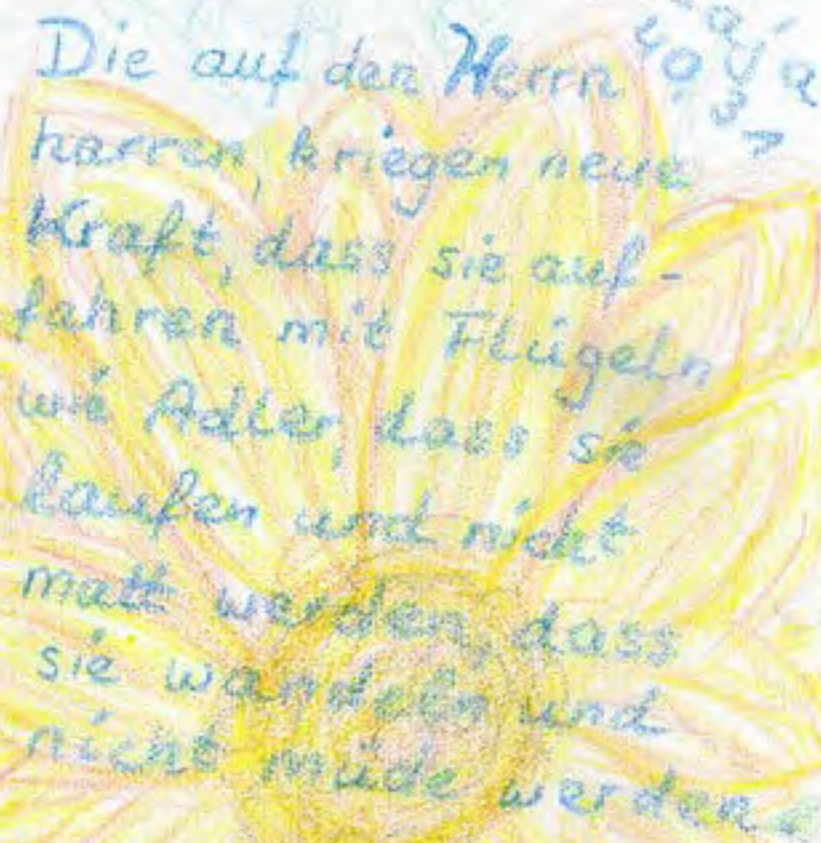 Die auf den Herrn
harren, kriegen neue
Kraft, dass sie auf-
fahren mit Flügeln
wie Adler, dass sie
laufen und nicht
matt werden, dass
sie wandeln und
nicht müde werden
aja
40,31